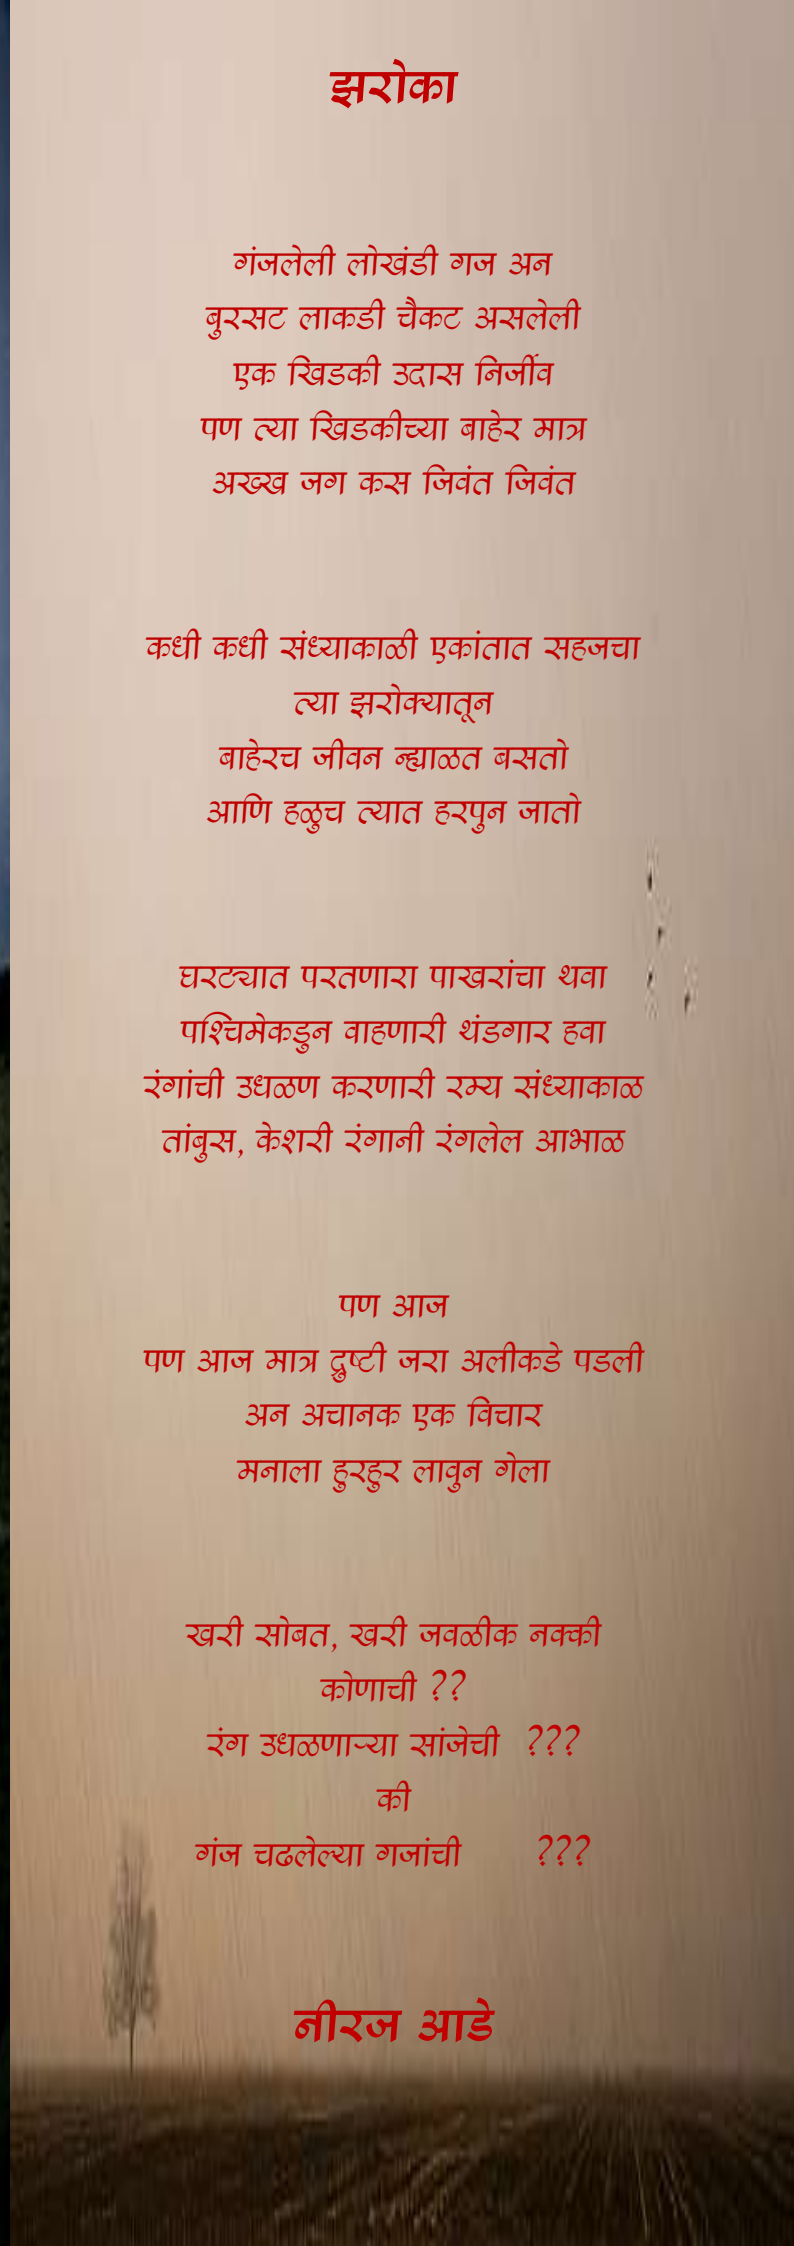 झरोका
गंजलेली लोखंडी गज अन
बुरसट लाकडी चैकट असलेली
एक खिडकी उदास निर्जीव
पण त्या खिडकीच्या बाहेर मात्र
अख्ख जग कस जिवंत जिवंत
कधी कधी संध्याकाळी एकांतात सहजचा
त्या झरोक्यातून
बाहेरच जीवन न्ह्याळत बसतो
आणि हळुच त्यात हरपुन जातो
घरट्यात परतणारा पाखरांचा थवा
पश्चिमेकडुन वाहणारी थंडगार हवा
रंगांची उधळण करणारी रम्य संध्याकाळ
तांबुस, केशरी रंगानी रंगलेल आभाळ
पण आज
पण आज मात्र द्रुष्टी जरा अलीकडे पडली
अन अचानक एक विचार
मनाला हुरहुर लावुन गेला
खरी सोबत, खरी जवळीक नक्की
कोणाची ??
रंग उधळणाऱ्या सांजेची ???
की
गंज चढलेल्या गजांची ???
नीरज आडे